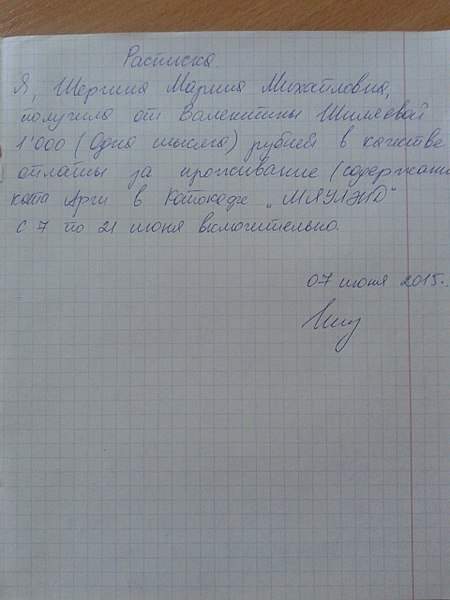 Расписка
Я, Шергина Марина Михайловна,
получила от Валентины Шиляевой
1'000 (Одна тысяча) рублей в качестве
оплаты за проживание (содержани
кота Арги в Котокафе „МЯУЛЭНД"
с 7 по 21 июня включительно.
07 июня 2015г.